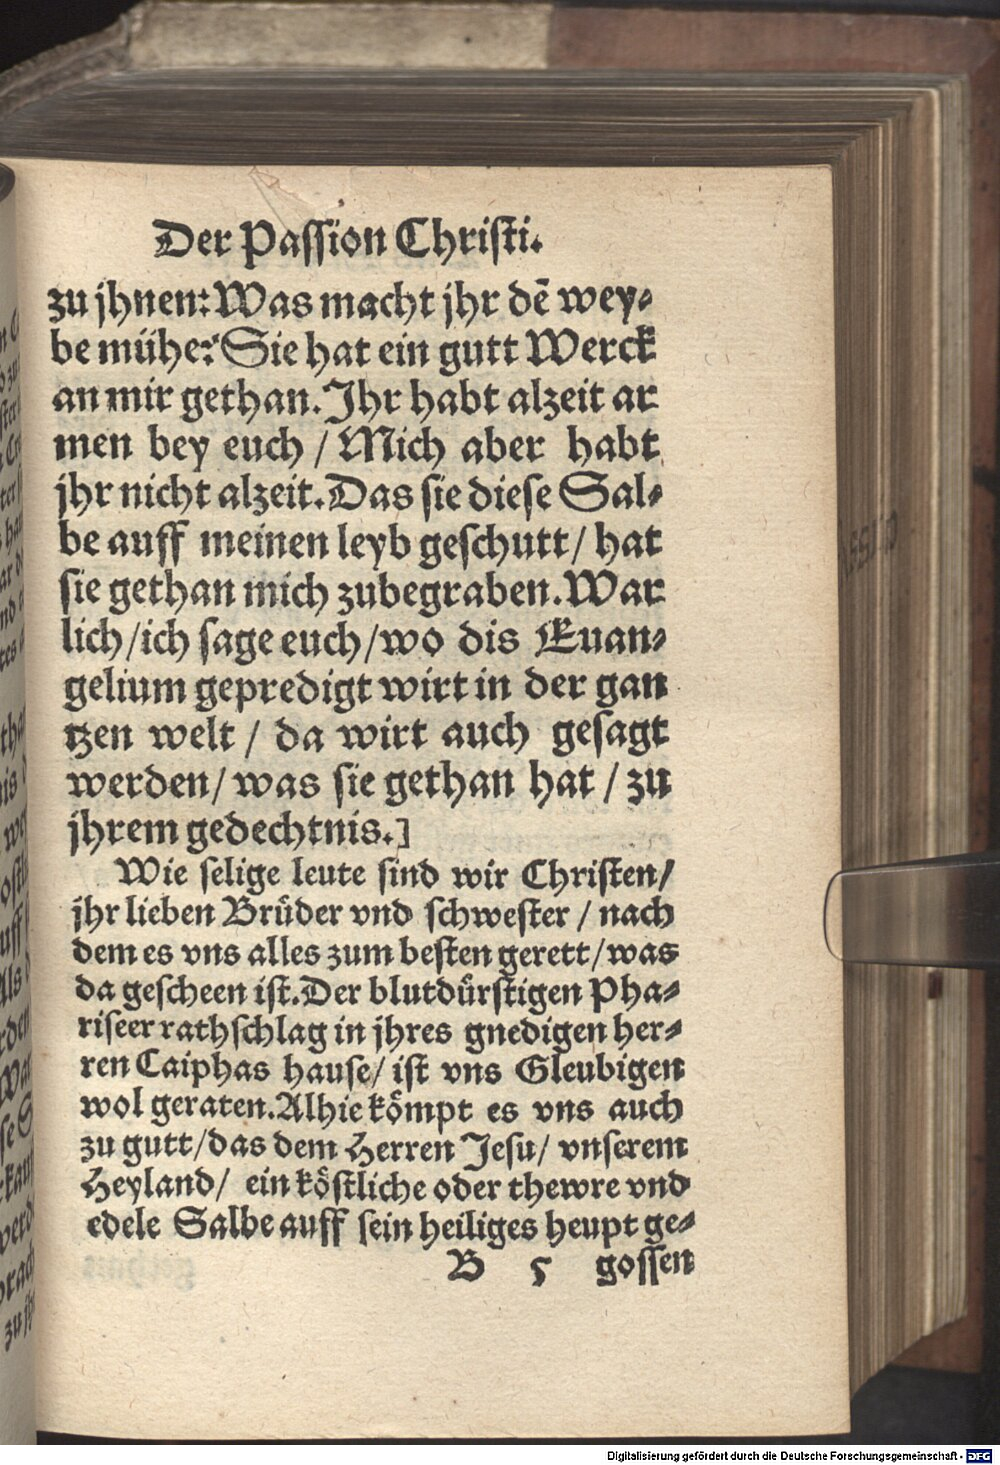 Der Passion Christi.
zu jhnen: Was macht jhr dē wey-
be mühe? Sie hat ein gutt Werck
an mir gethan. Jhr habt alzeit ar
men bey euch / Mich aber habt
jhr nicht alzeit. Das sie diese Sal-
be auff meinen leyb geschutt / hat
sie gethan mich zubegraben. War
lich / ich sage euch / wo dis Euan-
gelium gepredigt wirt in der gan
tzen welt / da wirt auch gesagt
werden / was sie gethan hat / zu
jhrem gedechtnis.]
Wie selige leute sind wir Christen /
jhr lieben Brüder vnd schwester / nach
dem es vns alles zum besten gerett / was
da gescheen ist. Der blutdürstigen Pha-
riseer rathschlag in jhres gnedigen her-
ren Caiphas hause / ist vns Gleubigen
wol geraten. Alhie kömpt es vns auch
zu gutt / das dem Herren Jesu / vnserem
Heyland / ein köstliche oder thewre vnd
edele Salbe auff sein heiliges heupt ge-
B 5 gossen
Digitalisierung gefördert durch die Deutsche Forschungsgemeinschaft - DFG